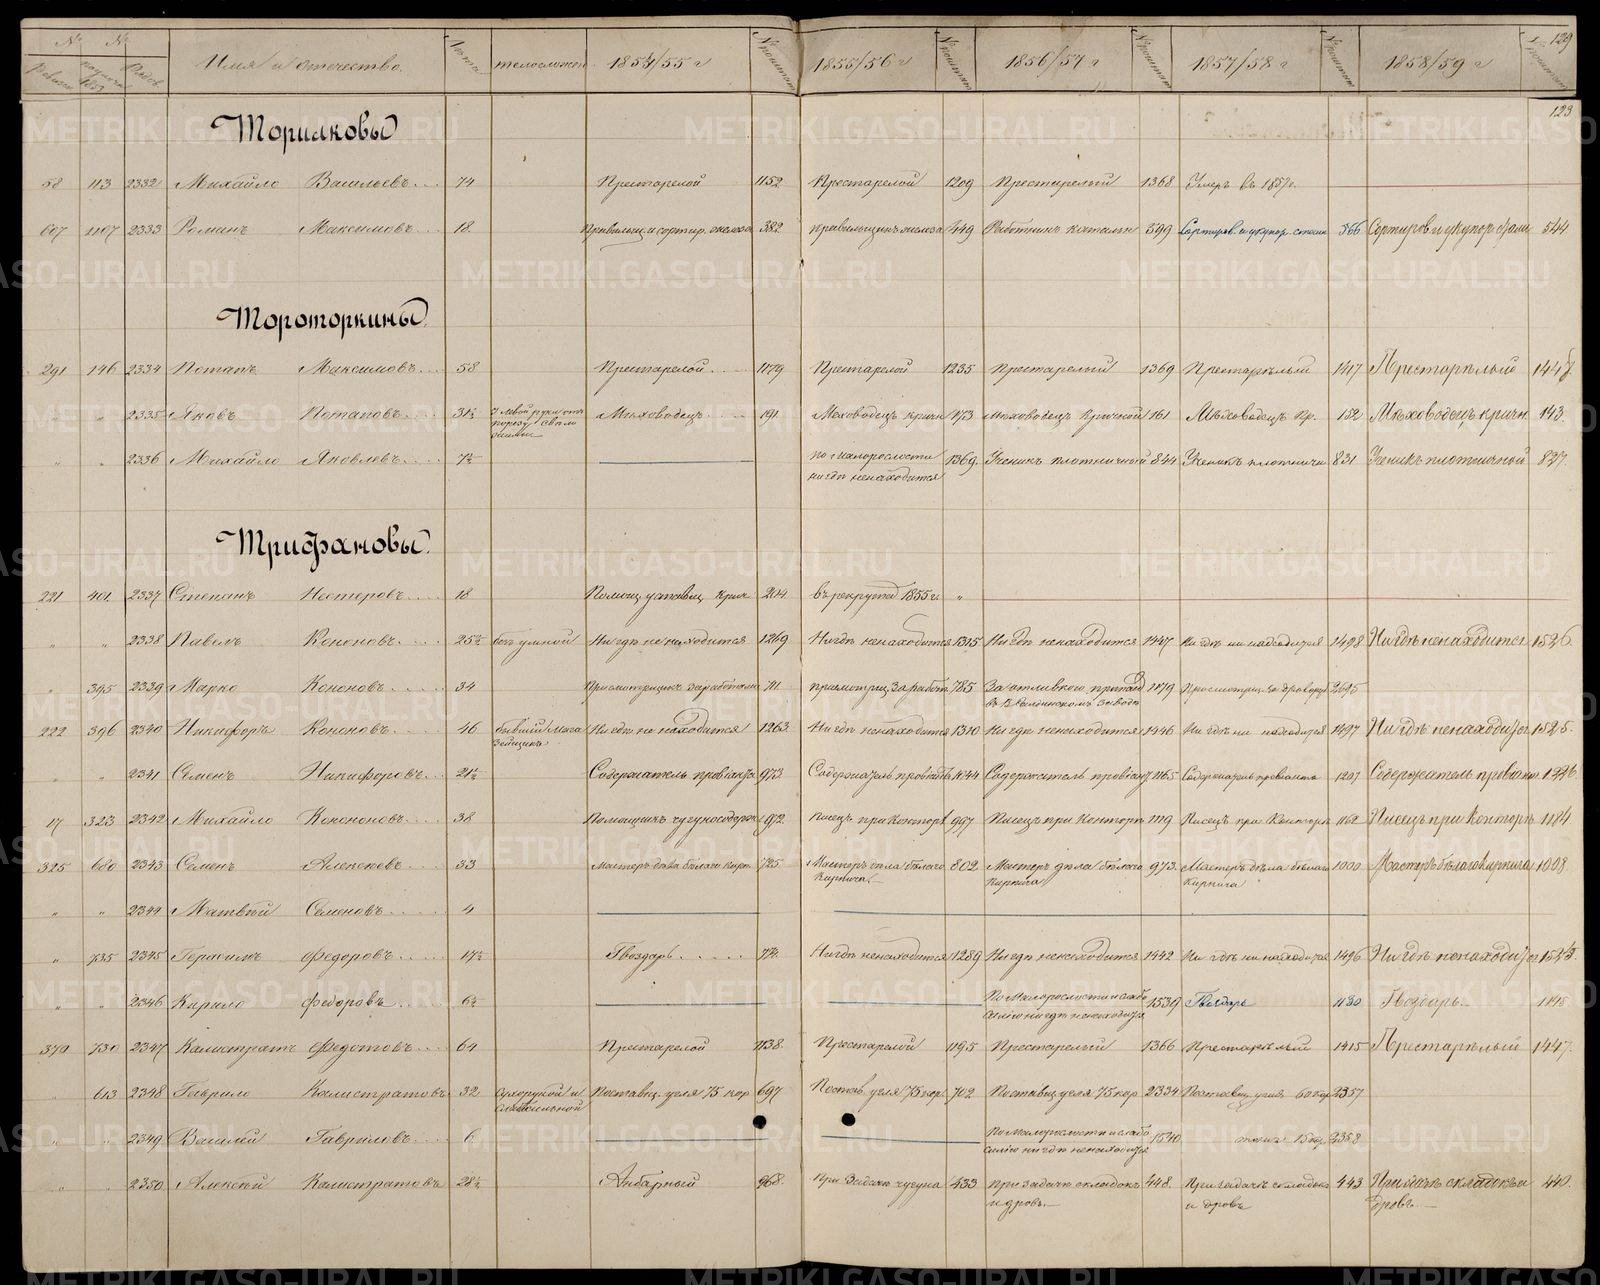 № № Имя и отчество. Лета телосложен. 1854/55 г 1855/56 г 1856/57 г 1857/58 г 1858/59 г 129
123
ТориLковы
58 113 2332 Михайло Васильевъ 74 Престарелой 1152 Престарелой 1209 Престарелый 1368 Умеръ въ 1857 г.
607 1107 2333 Романъ Максимовъ 18 382 449 Работникъ 399 366 544
Тороторкины
291 146 2334 Потапъ Максимовъ 58 Престарелой 1179 Престарелой 1235 Престарелый 1369 Престарѣлый 1417 Престарѣлый
" " 2335 Яковъ Потаповъ 31½ Мѣховодецъ 191 Меховодецъ кричн 173 Мѣховодецъ кричной 161 Мѣховодецъ кр. 152 Мѣховодецъ кричн 143
" " 2336 Михайло Яковлевъ 7½ по малорослости нигдѣ ненаходится 1369 Ученикъ плотничной 844 Ученикъ плотничн 831 Ученикъ плотничной 827
Трифановы
221 401 2337 Степанъ Нестеровъ 18 Помощ. уставщ. крич 204 въ рекрутѣ 1855 г. "
" " 2338 Павелъ Кононовъ 25½ безъ умной Нигдѣ не находится 1269 Нигдѣ ненаходится 1315 Нигдѣ ненаходится 1447 Ни гдѣ ни находится 1498 Нигдѣ ненаходится 1526
" 395 2339 Марко Кононовъ 34 Присмотрщикъ за работами 711 присмотрщ. за работ. 785 1179 2695
222 396 2340 Никифоръ Кононовъ 46 бывший Нигдѣ не находится 1263 Нигдѣ ненаходится 1310 Нигдѣ ненаходится 1446 Ни гдѣ ни находится 1497 Нигдѣ ненаходится 1525
" " 2341 Семенъ Никифоровъ 21½ Содержатель провіанта 973 Содержатель провіанта 1044 Содержатель провіанта 1165 Содержатель провіанта 1207 Содержатель провіанта 1226
17 323 2342 Михайло Кокононовъ 38 Помощникъ 972 Писецъ при Конторѣ 997 Писецъ при Конторѣ 1119 Писецъ при Конторѣ 1162 Писецъ при Конторѣ 1184
325 680 2343 Семенъ Алексѣевъ 33 Мастеръ дѣла бѣлаго кирп. 725 Мастеръ дѣла бѣлаго Кирпича 802 Мастеръ дѣла бѣлаго Кирпича 973 Мастеръ дѣла бѣлаго Кирпича 1000 Мастеръ бѣлаго Кирпича 1008
" " 2344 Матвѣй Семеновъ 4
" 735 2345 Герасимъ Федоровъ 17½ Гвоздарь 774 Нигдѣ ненаходится 1289 Нигдѣ ненаходится 1442 Ни гдѣ ни находится 1496 Нигдѣ ненаходится
" " 2346 Кирило Федоровъ 6½ По малорослости и слабосилію нигдѣ ненаходится 1539 Гвоздарь 1130 Гвоздарь
379 730 2347 Калистратъ Федотовъ 64 Престарелой 1138 Престарелой 1195 Престарелый 1366 Престарѣлый 1415 Престарѣлый 1447
" 613 2348 Гаврило Калистратовъ 32 Сухорукой и слабосильной Поставщ. угля 75 кор 697 Постав. угля 75 кор. 702 Поставщ угля 75 кор 2334 Поставщ. угля 60 кор 2357
" " 2349 Василій Гавриловъ 6 По малорослости и слабосилію нигдѣ ненаходится 1540 тоже 15 кор. 2358
" " 2350 Алексѣй Калистратовъ 28½ Анбарный 968 При задачѣ чугуна 433 При задачѣ складокъ и дровъ 448 При задачѣ складокъ и дровъ 443 При задачѣ складокъ и дровъ 440